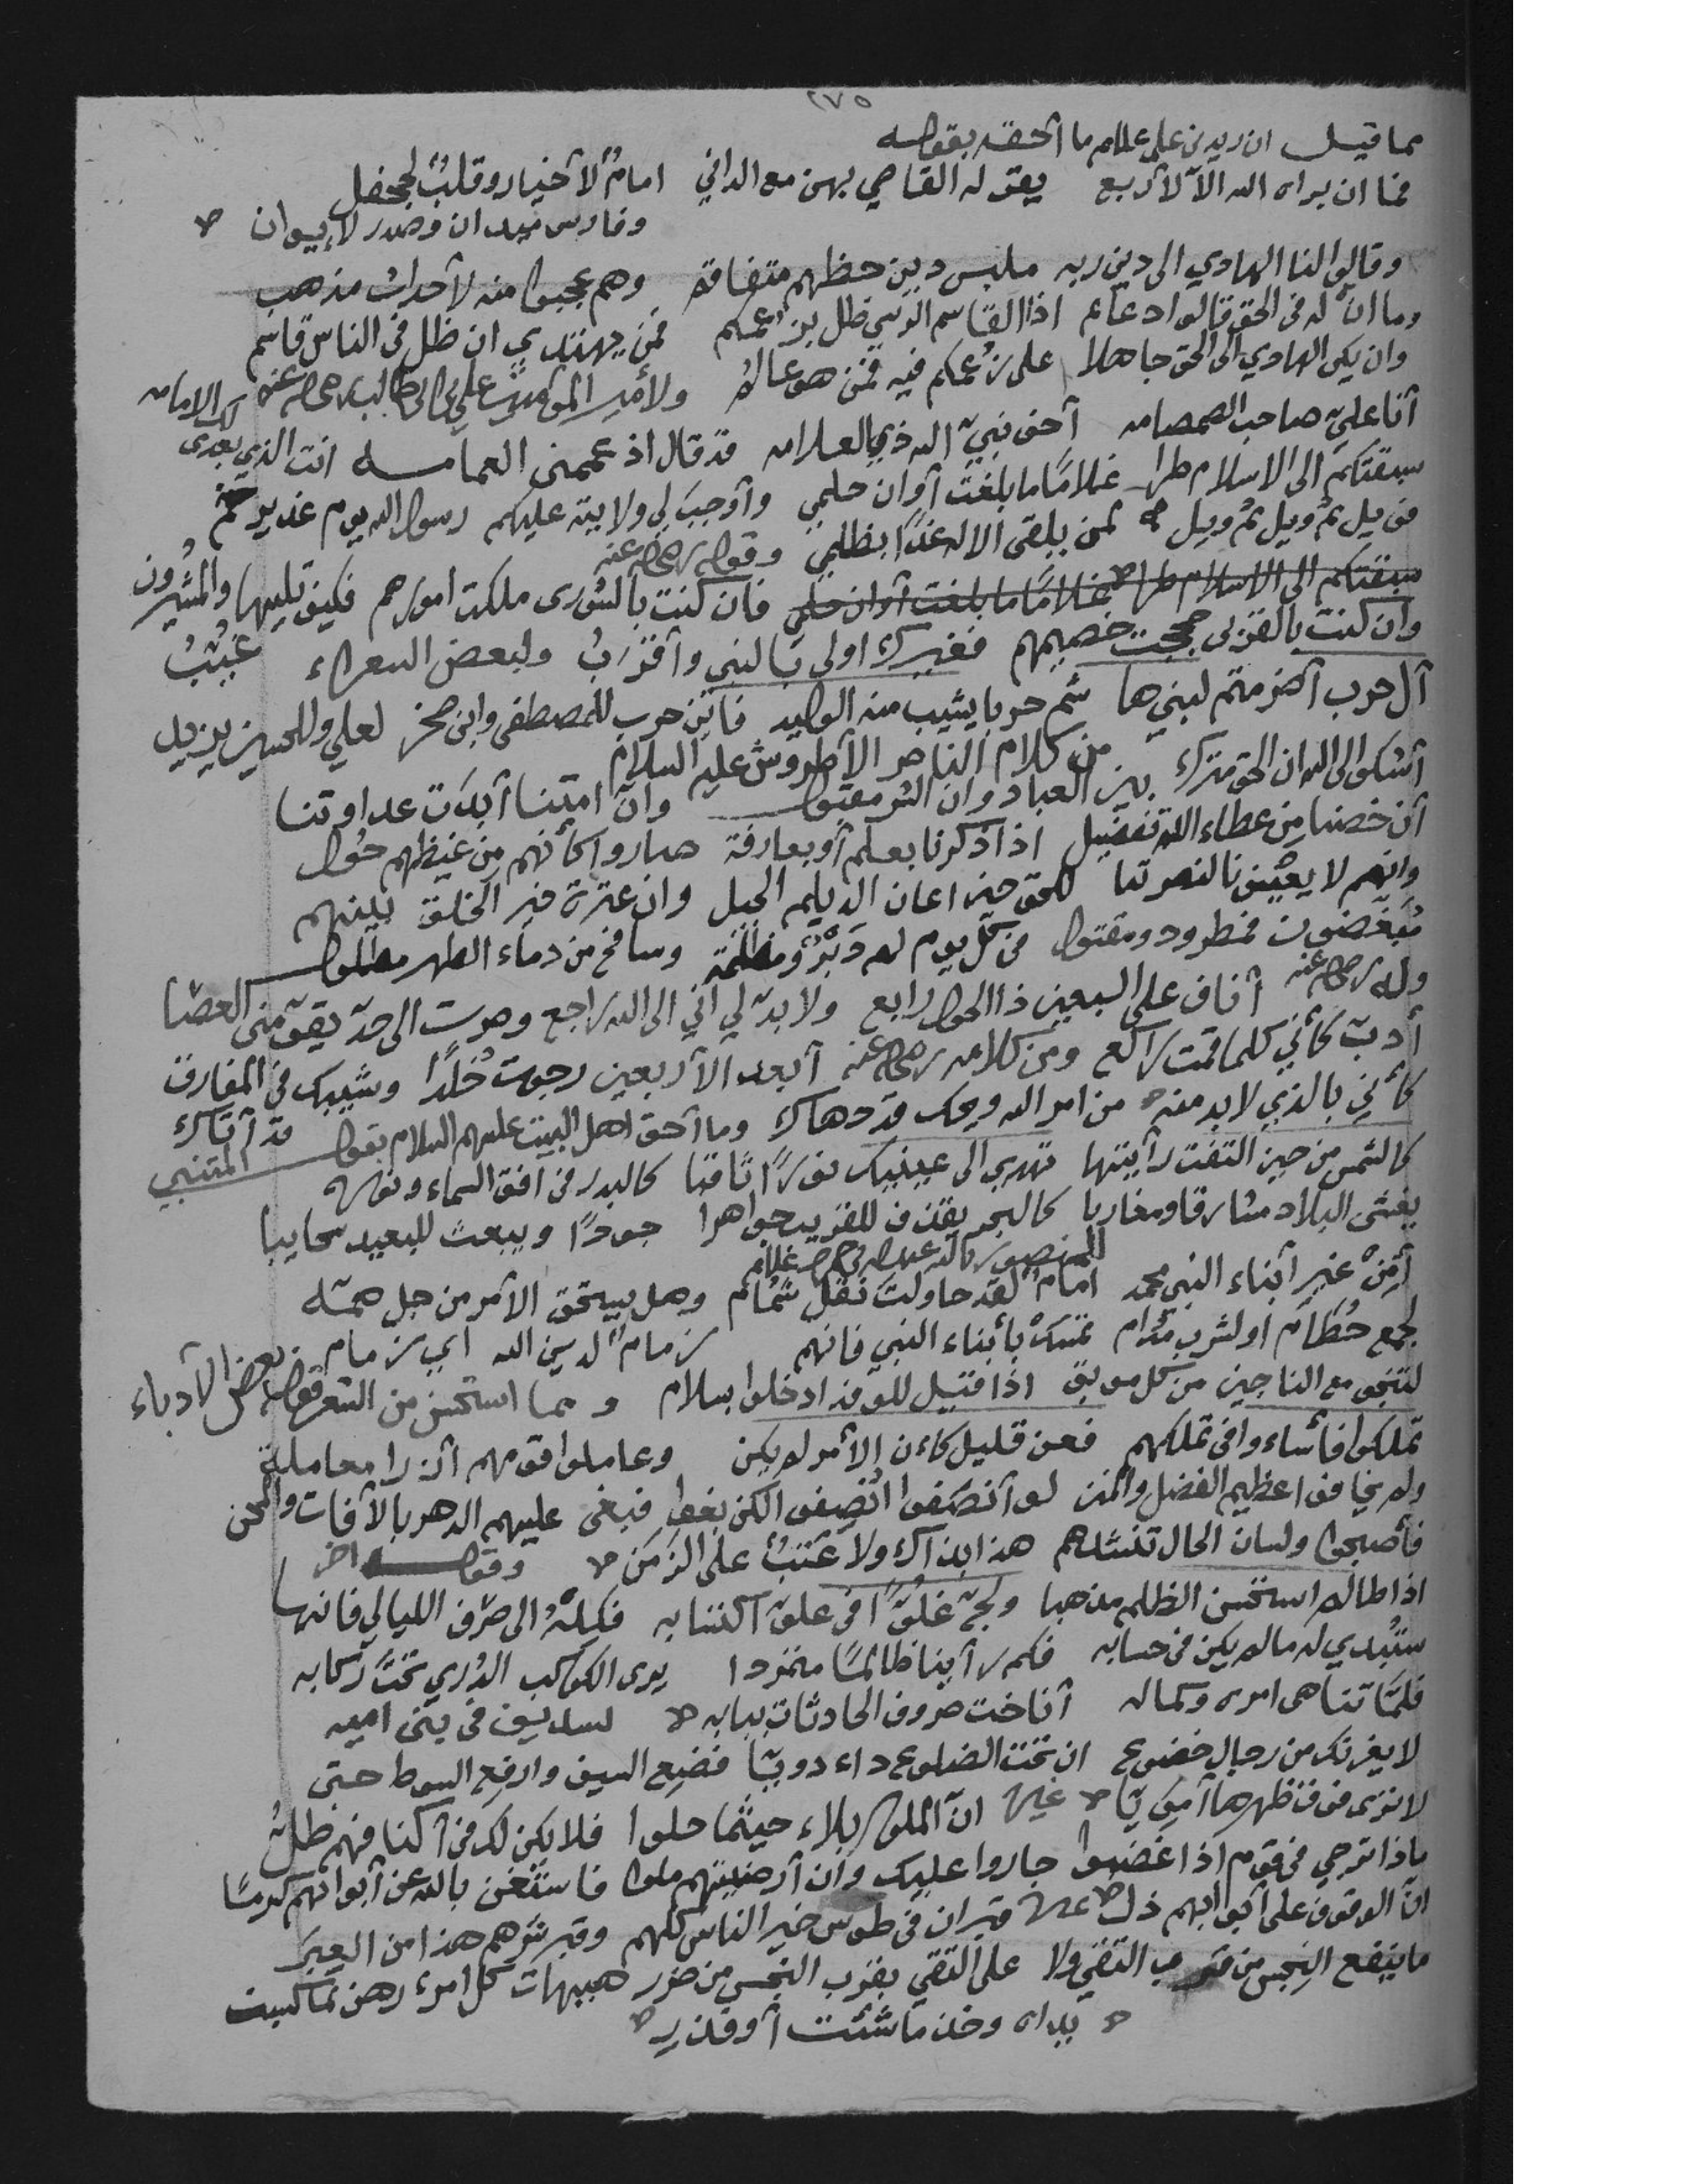 ٢٧٥
مما قيل ان زيد بن علي علم ما أحقه بقوله
فما ان براه الله الا لأربع يقر له القاصي بهن مع الداني امام لأخيار وقلب لجحفل
وفارس ميدان وصدر لإيوان
وقالوا لنا الهادي الى دين ربه ملبس دين حظهم متفاقم وهم عجبوا منه لأحداث مذهب
وما ان له في الحق قالوا دعائم اذا القاسم الرسي ظل بزعمكم فمن يهتدي ان ظل في الناس قاسم
وان يكن الهادي الى الحق جاهلا على زعمكم فيه فمن هو عالم ولأمير المؤمنين علي بن ابي طالب رضي الله عنه
أنا علي صاحب الصمصامه أخو نبي الله ذي العلامه قد قال اذ عممني العمامه انت الذي بعدي لك الامامه
سبقتكم الى الاسلام طرا غلامًا ما بلغت أوان حلمي وأوجب لي ولايته عليكم رسول الله يوم غدير خم
فويل ثم ويل ثم ويل لمن يلقى الاله غدًا بظلمي وقوله رضي الله عنه
سبقتكم الى الاسلام طرا غلامًا ما بلغت أوان حلمي فان كنت بالشورى ملكت امورهم فكيف تليها والمشيرون غيب
وان كنت بالقربى حججت خصيمهم فغيرك اولى بالنبي وأقرب ولبعض الشعراء
آل حرب أضرمتم لبنيها شم حربا يشيب منه الوليد فابن حرب للمصطفى وابن صخر لعلي وللحسين يزيد
من كلام الناصر الأطروش عليه السلام
أشكو الى الله ان الحق متروك بين العباد وان الشر مقبول وان امتنا أبدت عداوتنا
أن خصنا من عطاء الله تفضيل اذا ذكرنا بعلم أو بعارفة صاروا كأنهم من غيظهم حول
وانهم لا يعينونا لنصرتنا للحق حين اعان الديلم الجيل وان عترة خير الخلق بينهم
مبغضون فمطرود ومقتول في كل يوم لهم وتر ومظلمة وسافح من دماء الطهر مطلول
وله رضي الله عنه أناف على السبعين ذا الحول رابع ولا بد لي أني الى الله راجع وصرت الى حد يقومني العصا
أدب كأني كلما قمت راكع ومن كلامه رضي الله عنه أبعد الأربعين رجوت خلدًا وشيبك في المفارق قد أتاك
كأني بالذي لابد منه من امر الله ويحك قد دهاك وما أحق اهل البيت عليهم السلام بقول المتنبي
كالشمس من حيث التفت رأيتها تهدي الى عينيك نورًا ثاقبا كالبدر في افق السماء ونوره
يغشى البلاد مشارقا ومغاربا كالبحر يقذف للقريب جواهرا جودًا ويبعث للبعيد سحايبا
المنصور بالله عبد الله بن حمزه علم
أمن غير أبناء النبي محمد امام لقد حاولت نقل شمام وهل يستحق الأمر من جل همه
لجمع حطام او لشرب مدام تمسك بأبناء النبي فانهم زمام لدين الله اي زمام
لتنجو مع الناجين من كل موبق اذا قيل للوفد ادخلوا بسلام ومما استحسن من الشعر قول بعض الأدباء
تملكوا فأساءوا في تملكهم فعن قليل كأن الأمر لم يكن وعاملوا قومهم انزرا معاملة
ولم يخافوا عظيم الفضل والمنن لو أنصفوا انصفوا لكن بغوا فبغى عليهم الدهر بالآفات والمحن
فأصبحوا ولسان الحال تنشدهم هذا بذاك ولا عتب على الزمن وقول اخر
اذا ظالم استحسن الظلم مذهبا ولج غلوًا في علو اكتسابه فكله الى صرف الليالي فانها
ستبدي له ما لم يكن في حسابه فكم رأينا ظالمًا متمردا يرى الكواكب الدري تحت ركابه
فلما تناهى امره وكماله أناخت صروف الحادثات ببابه لسديف في بني اميه
لا يغرنك من رجال خضوع ان تحت الضلوع داء دويا فضع السيف وارفع السوط حتى
لا ترى فوق ظهرها أمويا غيره ان الملوك بلاء حيثما حلوا فلا يكن لك في أكنافهم ظل
ماذا ترجي في قوم اذا غضبوا جاروا عليك وان أرضيتهم ملوا فاستغن بالله عن أبوابهم كرمًا
ان الوقوف على أبوابهم ذل غيره قبران في طوس خير الناس كلهم وقبر شرهم هذا من العبر
ما ينفع النجس من قرب التقي ولا على التقي بقرب النجس من ضرر هيهات كل امرء رهن بما كسبت
يداه وخذ ما شئت أو فذر